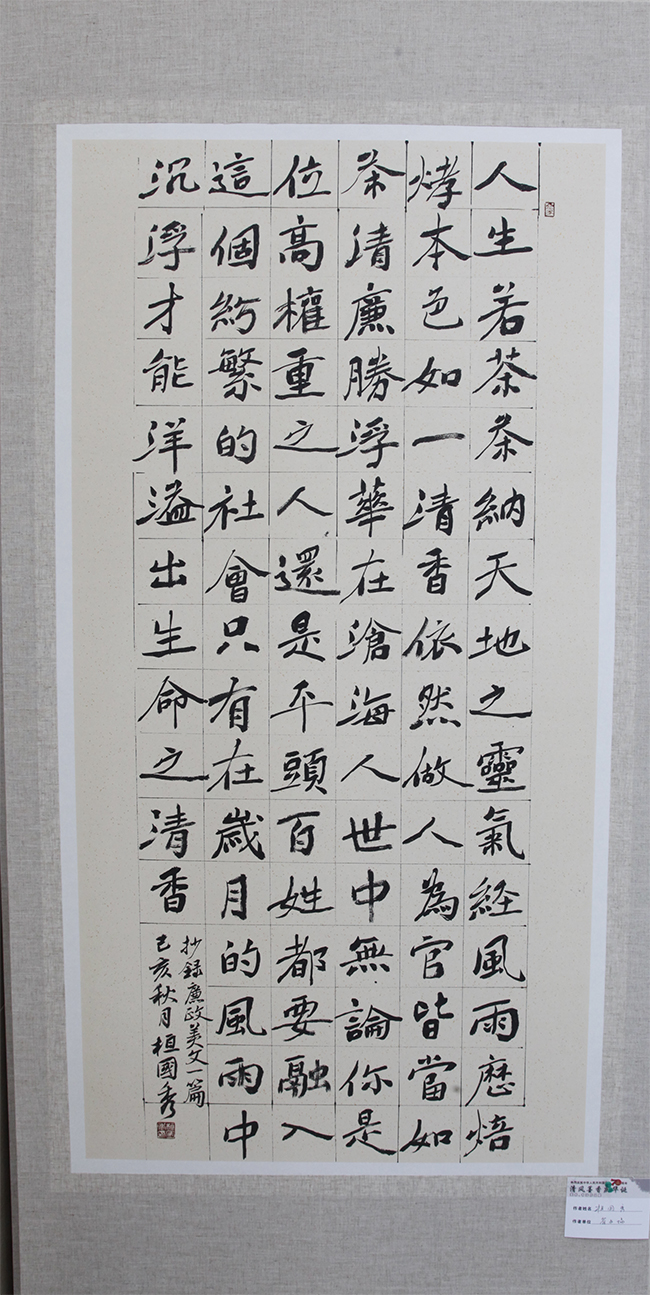 人生若茶茶納天地之靈氣経風雨歷焙
烤本色如一清香依然做人為官皆當如
茶清廉勝浮華在滄海人世中無論你是
位高權重之人還是平頭百姓都要融入
這個紛繁的社會只有在歲月的風雨中
沉浮才能洋溢出生命之清香
抄錄廉政美文一篇
己亥秋月桓國秀
清风墨香
作者姓名
作者单位